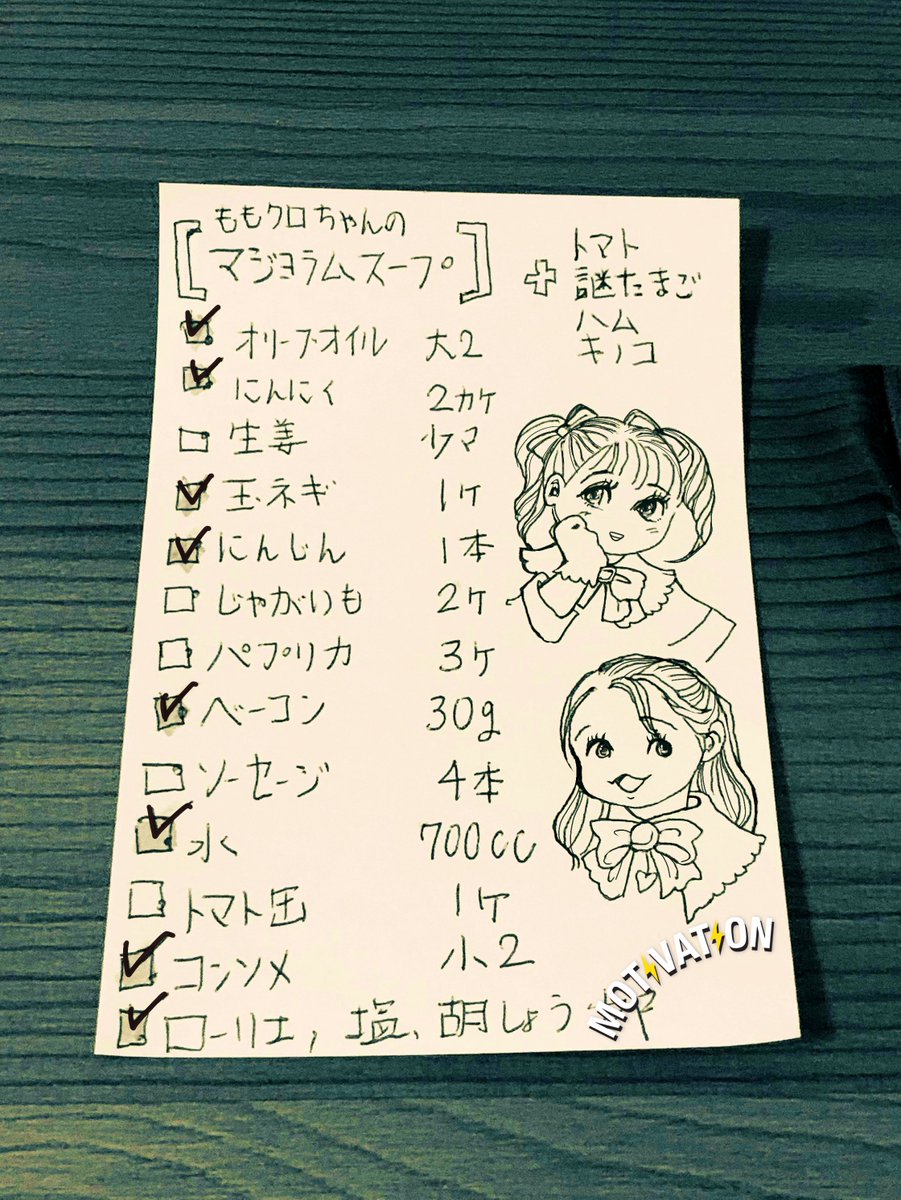 ももクロちゃんの
マジョラムスープ
オリーブオイル 大2
にんにく 2カケ
生姜 少マ
玉ネギ 1ヶ
にんじん 1本
じゃがいも 2ヶ
パプリカ 3ヶ
ベーコン 30g
ソーセージ 4本
水 700cc
トマト缶 1ヶ
コンソメ 小2
ローリエ, 塩、胡しょう
+ トマト
謎たまご
ハム
キノコ
MOTIVATION